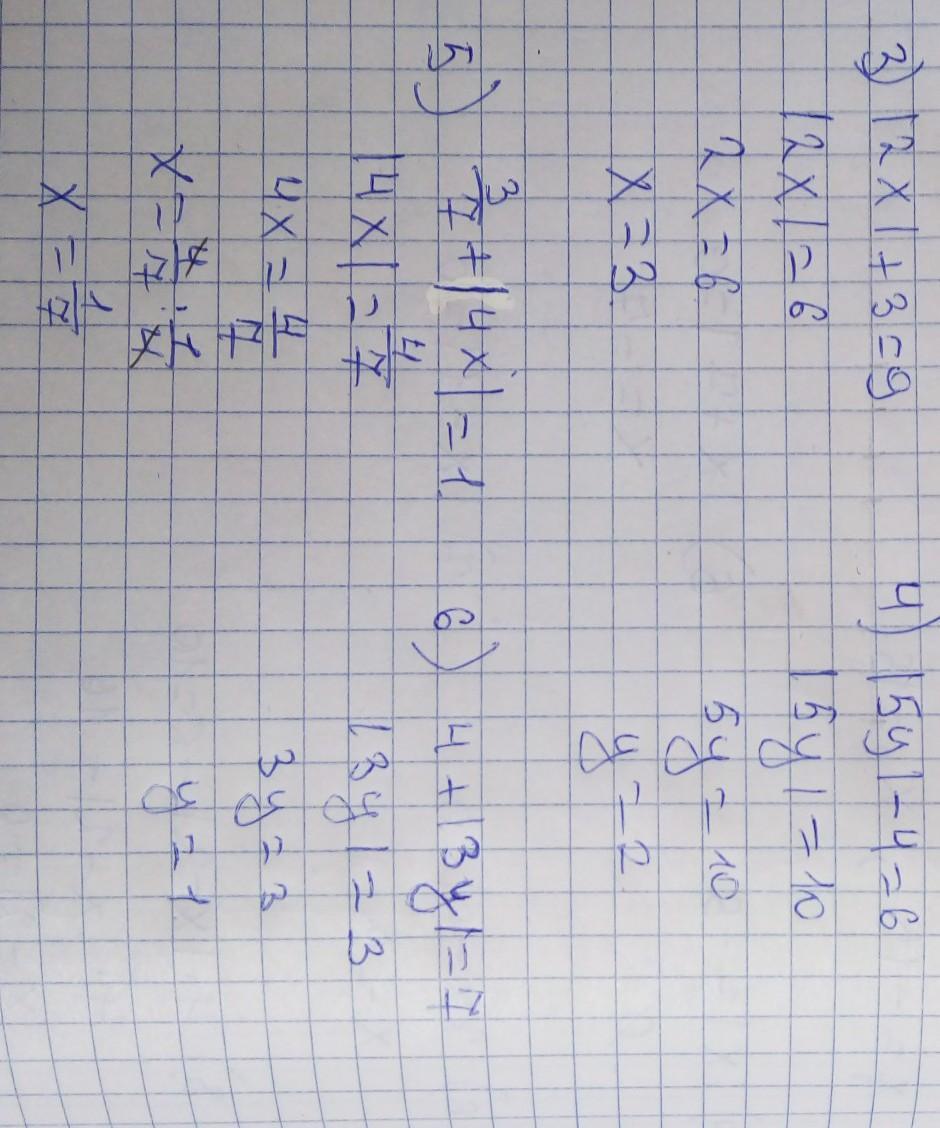 3) |2x|+3=9
|2x|=6
2x=6
x=3
4) |5y|-4=6
|5y|=10
5y=10
y=2
5) 3/7+|4x|=1
|4x|=4/7
4x=4/7
x=4/7·1/4
x=1/7
6) 4+|3y|=7
|3y|=3
3y=3
y=1